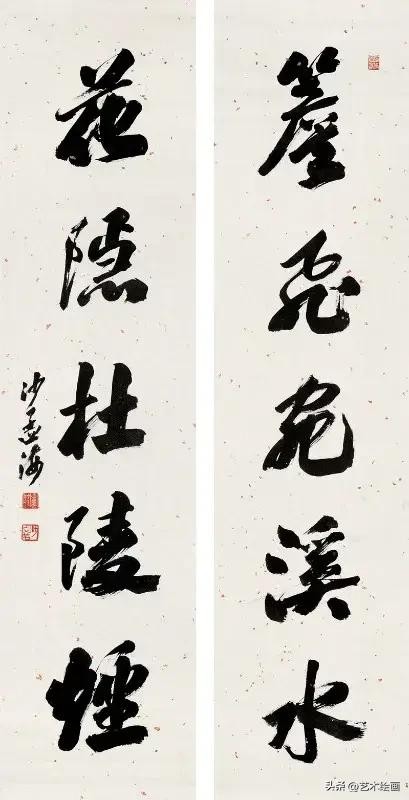 簷飛宛溪水
花隱杜陵煙
沙孟海
头条@艺术绘画